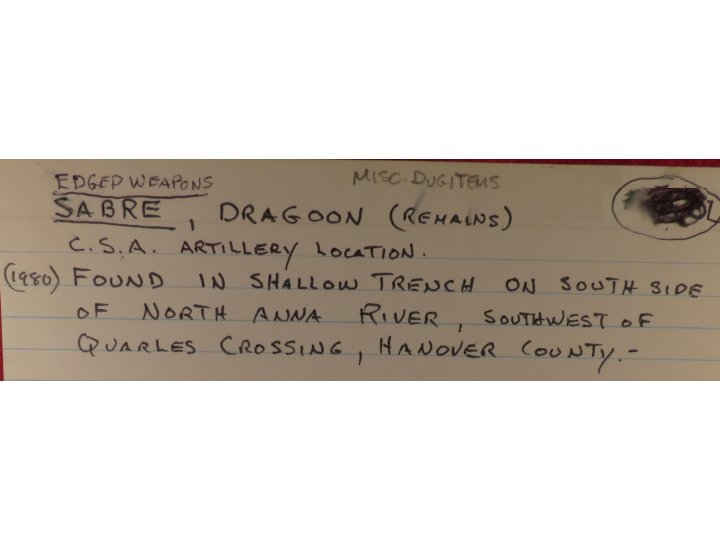 EDGED WEAPONS MISC. DUG ITEMS
SABRE, DRAGOON (REMAINS)
C.S.A. ARTILLERY LOCATION.
(1980) FOUND IN SHALLOW TRENCH ON SOUTH SIDE
OF NORTH ANNA RIVER, SOUTHWEST OF
QUARLES CROSSING, HANOVER COUNTY.-